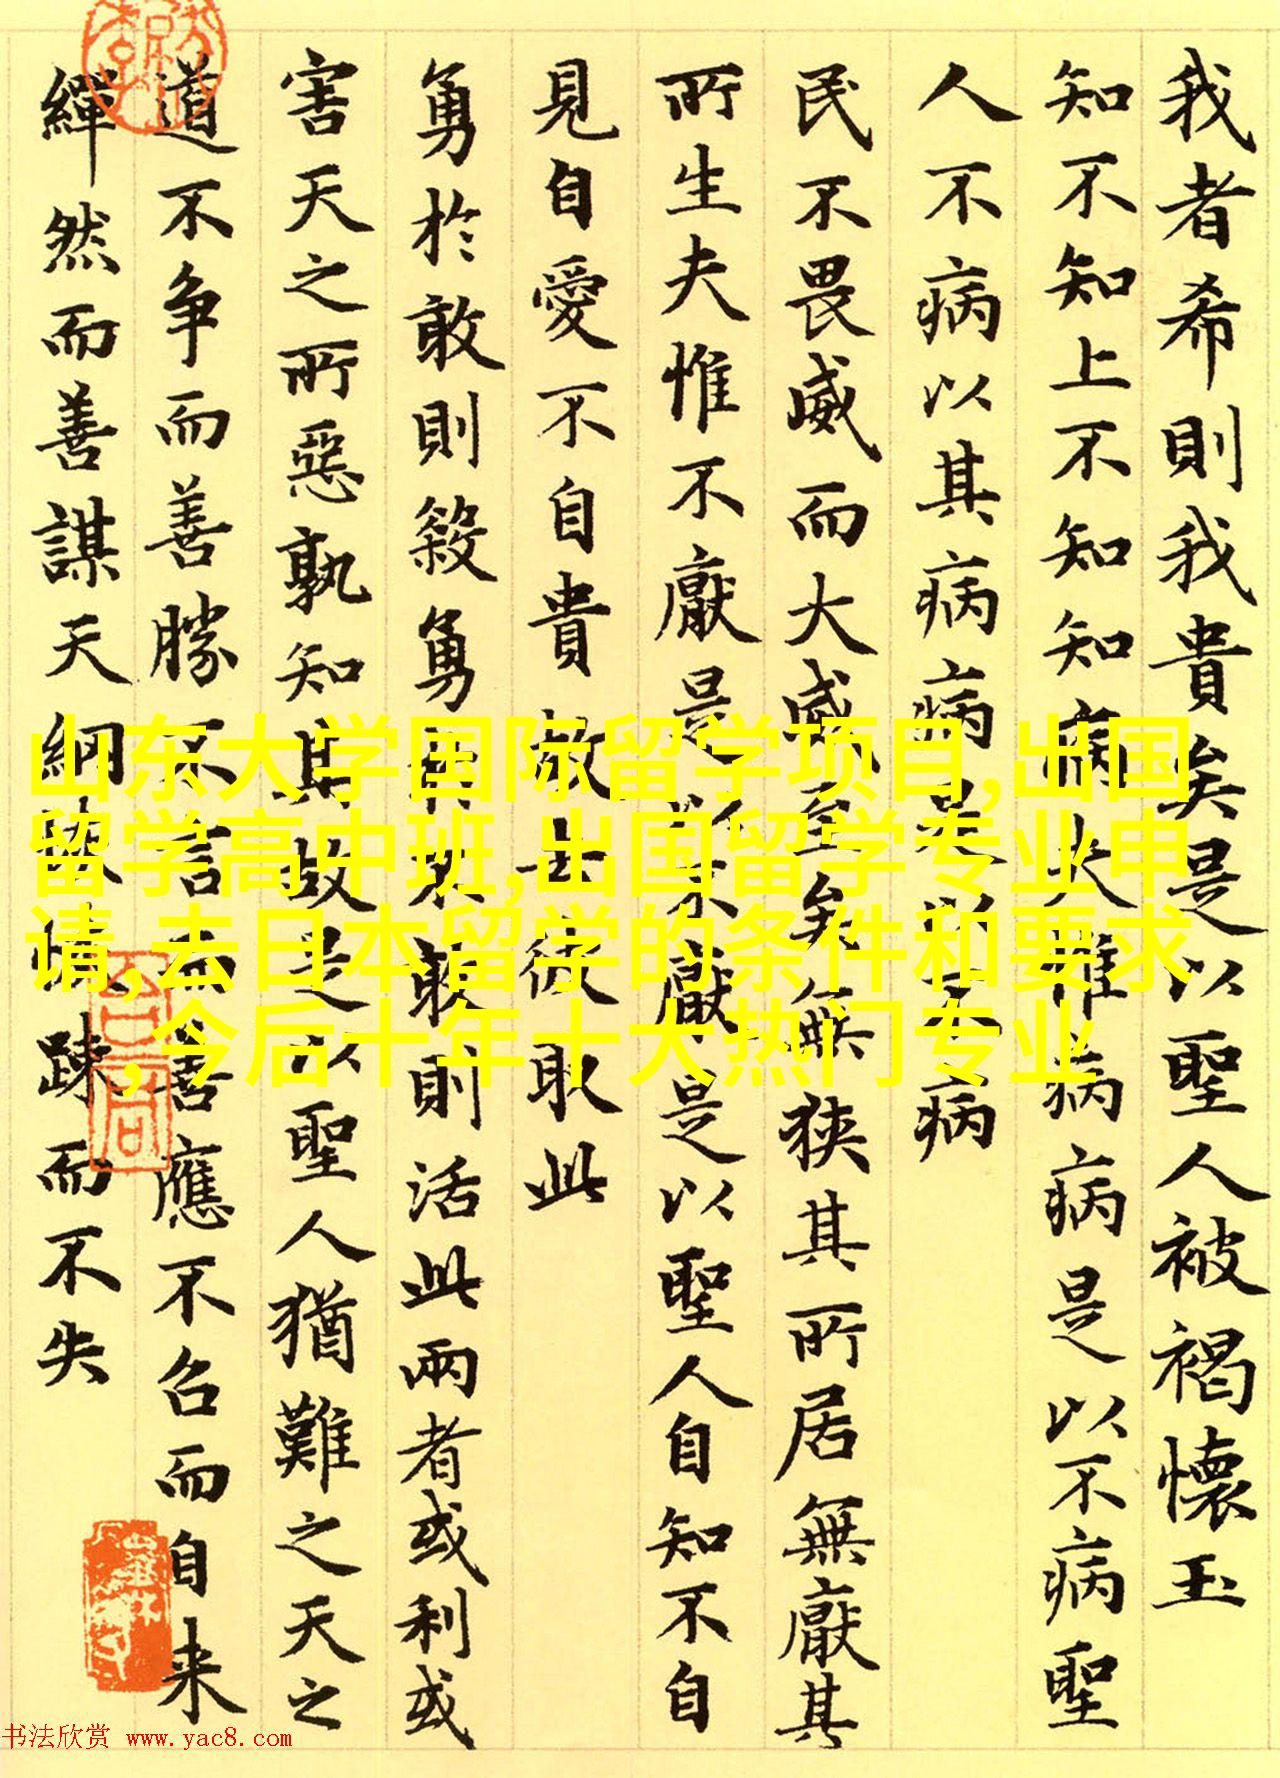 我者希則我貴矣是以聖人被褐懷玉
知不知上不知知病夫惟病病是以不病聖
人不病以其病病是以不病
民不畏威而大威至矣無狭其所居無厭其
所生夫惟不厭是以不厭是以聖人自知不自
見自愛不自貴故去彼取此
勇於敢則殺勇於不敢則活此兩者或利或
害天之所惡孰知其故是以聖人猶難之天之
道不争而善勝不言而善應不召而自来
繟然而善謀天網恢恢踈而不失
山东大学国际留学项目,出国
留学高中班,出国留学专业申
请,去日本留学的条件和要求
,今后十年十大热门专业
书法欣赏 www.yac8.com